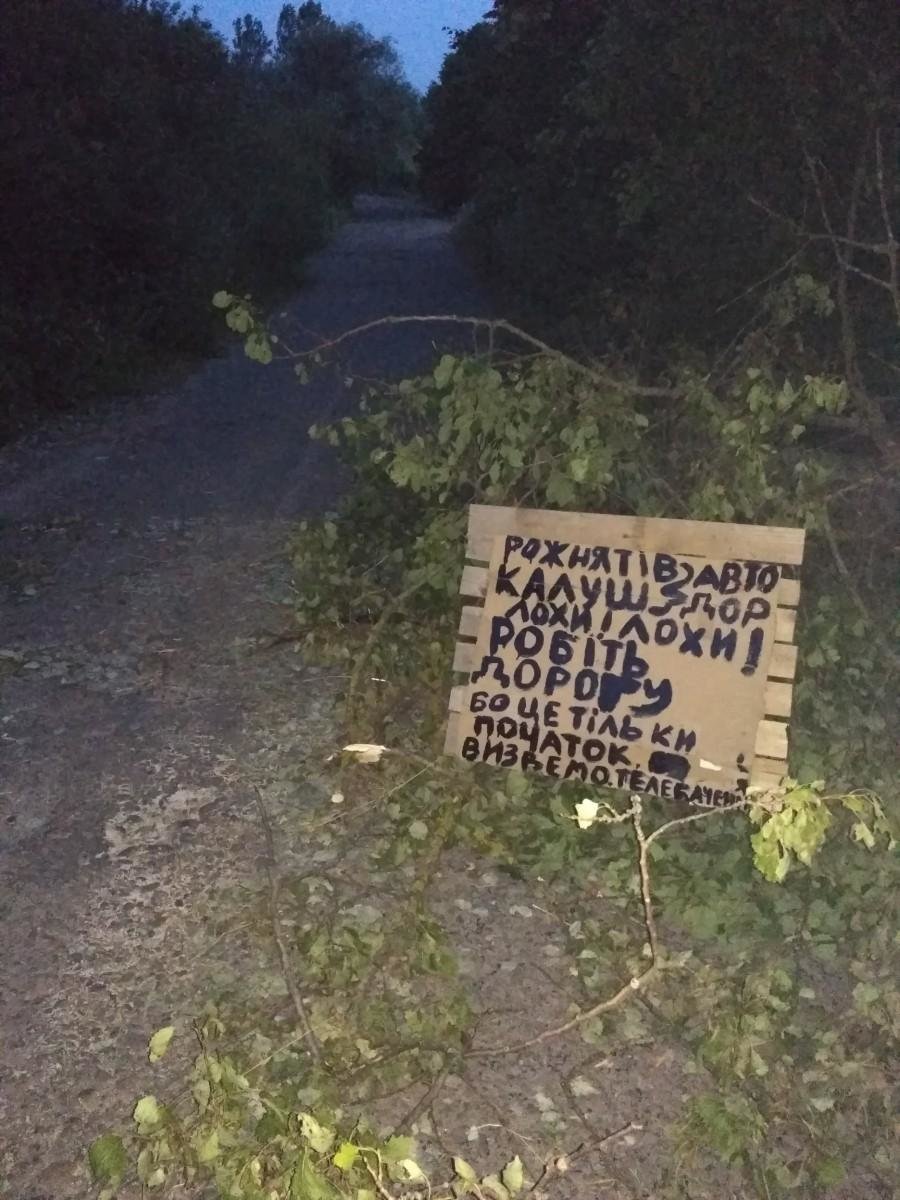 РОЖНЯТІВ АВТО
КАЛУШ ДОР
ЛОХИ І ЛОХИ!
РОБІТЬ
ДОРОГУ
БО ЦЕ ТІЛЬКИ
ПОЧАТОК.
ВИЗВЕМО. ТЕЛЕБАЧЕН